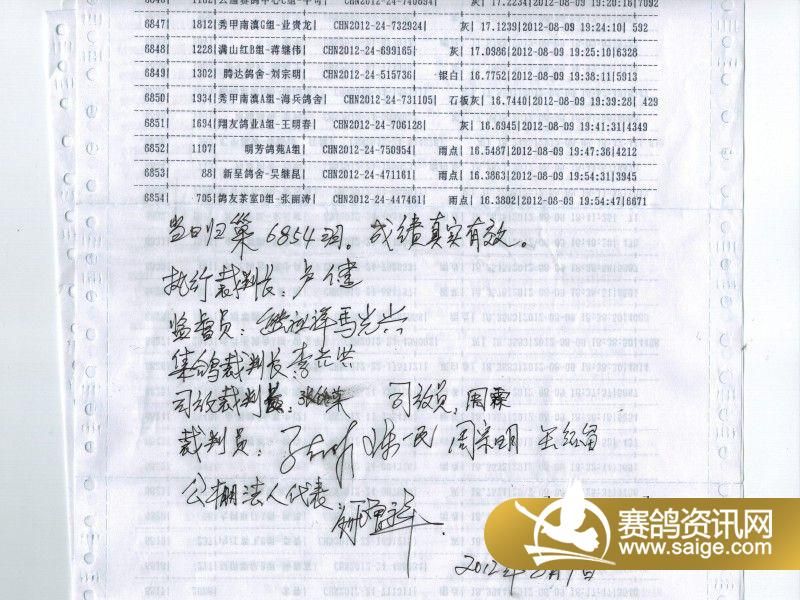 6847| 1812|秀甲南滇G组-业贵龙| CHN2012-24-732924| 灰| 17.1239|2012-08-09 19:24:10| 592
6848| 1228|满山红B组-蒋继伟| CHN2012-24-699165| 灰| 17.0986|2012-08-09 19:25:10|6328
6849| 1302| 腾达鸽舍-刘宗明| CHN2012-24-515736| 银白| 16.7752|2012-08-09 19:38:11|5913
6850| 1934|秀甲南滇A组-海兵鸽舍| CHN2012-24-731105| 石板灰| 16.7440|2012-08-09 19:39:28| 429
6851| 1694|翔友鸽业A组-王明春| CHN2012-24-706128| 灰| 16.6945|2012-08-09 19:41:31|4349
6852| 1107| 明芳鸽苑A组| CHN2012-24-750954| 雨点| 16.5487|2012-08-09 19:47:36|4212
6853| 88| 新星鸽舍-吴继昆| CHN2012-24-471161| 雨点| 16.3863|2012-08-09 19:54:31|3945
6854| 705|鸽友茶室D组-张丽涛| CHN2012-24-447461| 雨点| 16.3802|2012-08-09 19:54:47|6671
当日归巢6854羽。成绩真实有效。
执行裁判长:卢健
监督员:马光兴
集鸽裁判长:李
司放裁判长: 司放员:周霖
裁判员: 周宗明
公棚法人代表
2012年
赛鸽资讯网
www.saige.com